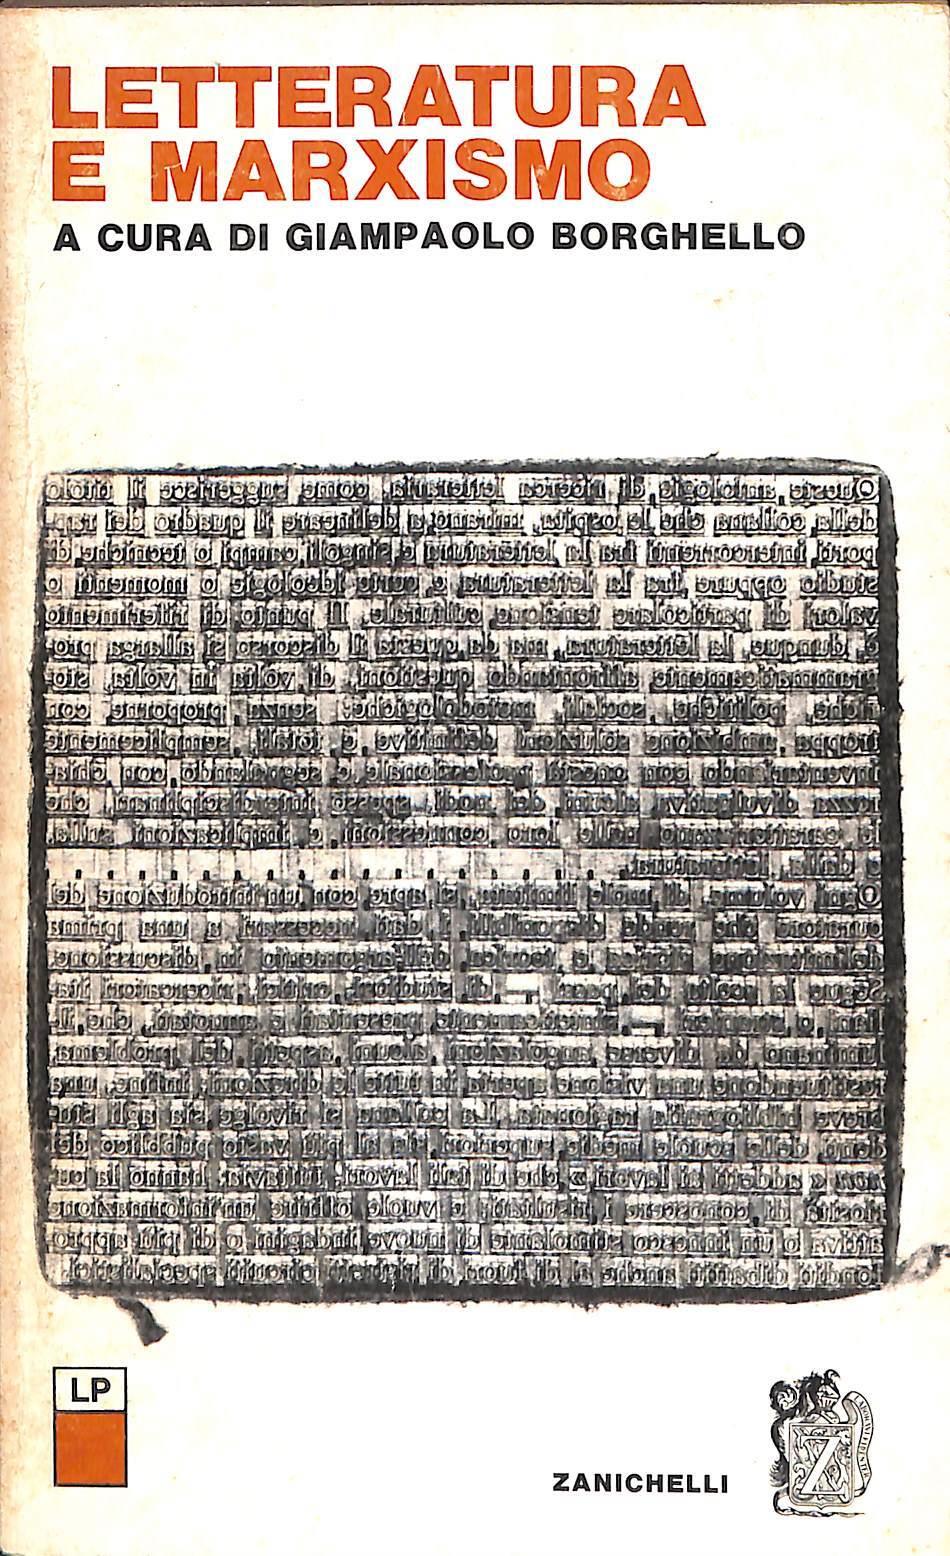 LETTERATURA
E MARXISMO
A CURA DI GIAMPAOLO BORGHELLO
Queste antologie di ricerca letteraria, come suggerisce il titolo
della collana che le ospita, mirano a delineare il quadro dei rap-
porti intercorrenti fra la letteratura e singoli campi o tecniche di
studio oppure fra la letteratura e certe ideologie o momenti o
valori di particolare tensione culturale. Il punto di riferimento
è, dunque, la letteratura, ma da questa il discorso si allarga pro-
grammaticamente affrontando questioni, di volta in volta, sto-
riche, politiche, sociali, metodologiche: senza proporne con
troppa ambizione soluzioni definitive e totali, semplicemente
inventariando con onestà professionale e segnalando con chia-
rezza divulgativa alcuni dei nodi, spesso interdisciplinari, che
le caratterizzano nelle loro connessioni e implicazioni sulla
e dalla letteratura.
Ogni volume, di mole limitata, si apre con un'introduzione del
curatore che rende disponibili i dati necessari a una prima
definizione storica e teorica dell'argomento in discussione.
Segue la scelta dei pezzi — di studiosi, critici, ricercatori ita-
liani o stranieri —, sinteticamente presentati e annotati, che il-
luminano da diverse angolazioni alcuni aspetti del problema,
restituendone una visione aperta in tutte le direzioni; infine, una
breve bibliografia ragionata. La collana si rivolge sia agli stu-
denti delle scuole medie superiori sia al più vasto pubblico dei
non « addetti ai lavori » che di tali lavori, tuttavia, hanno la cu-
riosità di conoscere i risultati; e vuole offrire un'informazione
attiva o un innesco stimolante di nuove indagini o di più appro-
fonditi dibattiti anche al di fuori di ristretti circuiti specialistici.
LP
ZANICHELLI
Z